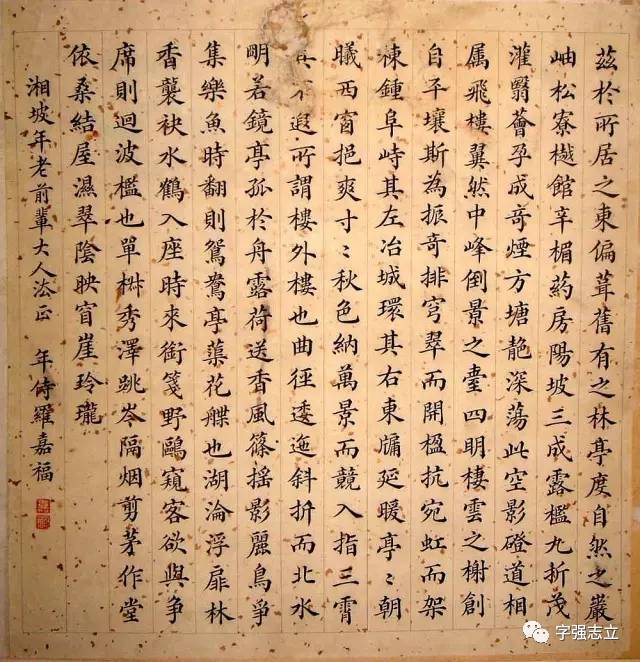 茲於所居之東偏葺舊有之林亭度自然之巖
岫松寮樾館辛楣葯房陽坡三成露檻九折茂
灌翳薈孕成奇煙方塘艷深蕩此空影磴道相
属飛樓翼然中峰倒景之臺四明棲雲之榭創
自平壤斯為振奇排穹翠而開楹抗宛虹而架
棟鍾阜峙其左冶城環其右東牖延暖亭〻朝
曦西窗挹爽寸〻秋色納萬景而競入指三霄
不遐所謂樓外樓也曲徑逶迤斜折而北水
明若鏡亭孤於舟露荷送香風篠搖影麗鳥爭
集樂魚時翻則鴛鴦亭蕖花艓也湖淪浮扉林
香襲袂水鶴入座時來銜箋野鷗窺客欲與爭
席則迴波檻也單椒秀澤跳岑隔烟剪茅作堂
依桑結屋濕翠陰映窅崖玲瓏
湘坡年老前輩大人法正 年侍羅嘉福
字强志立